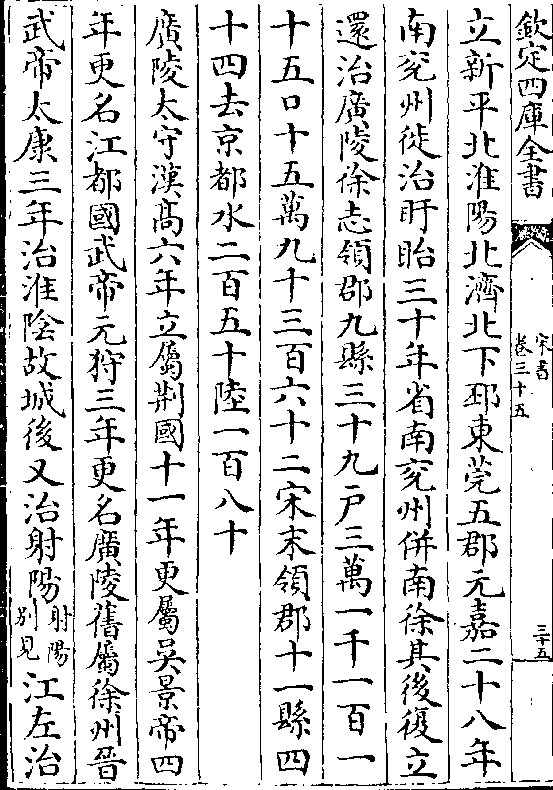 欽定四庫全書
宋書
卷三十五
三十五
立新平北淮陽北濟北下邳東莞五郡元嘉二十八年
南兖州徙治盱眙三十年省南兖州併南徐其後復立
還治廣陵徐志領郡九縣三十九户三萬一千一百一
十五口十五萬九十三百六十二宋末領郡十一縣四
十四去京都水二百五十陸一百八十
廣陵太守漢髙六年立屬荆國十一年更屬吳景帝四
年更名江都國武帝元狩三年更名廣陵舊屬徐州晉
武帝太康三年治淮隂故城後又治射陽射陽别見江左治